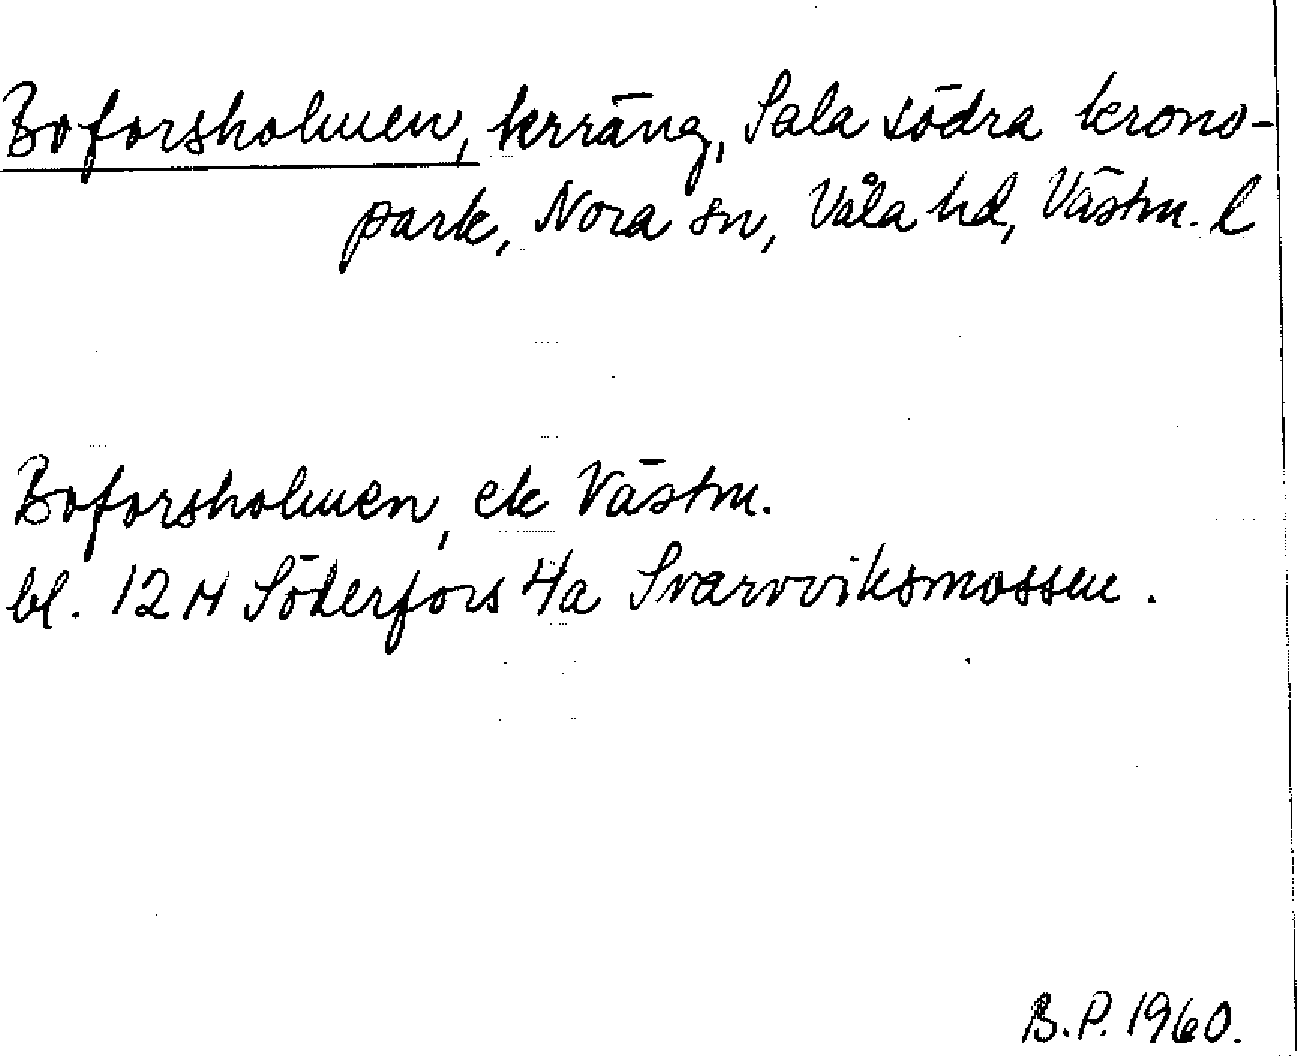 Boforsholmen, krräng, Sala södra krono-
park, Nora sn, Våla hd, Västm. l
Boforsholmen, ek Västm.
bl. 12 H Söderfors 4a Svarvviksmossen.
B.P. 1960.